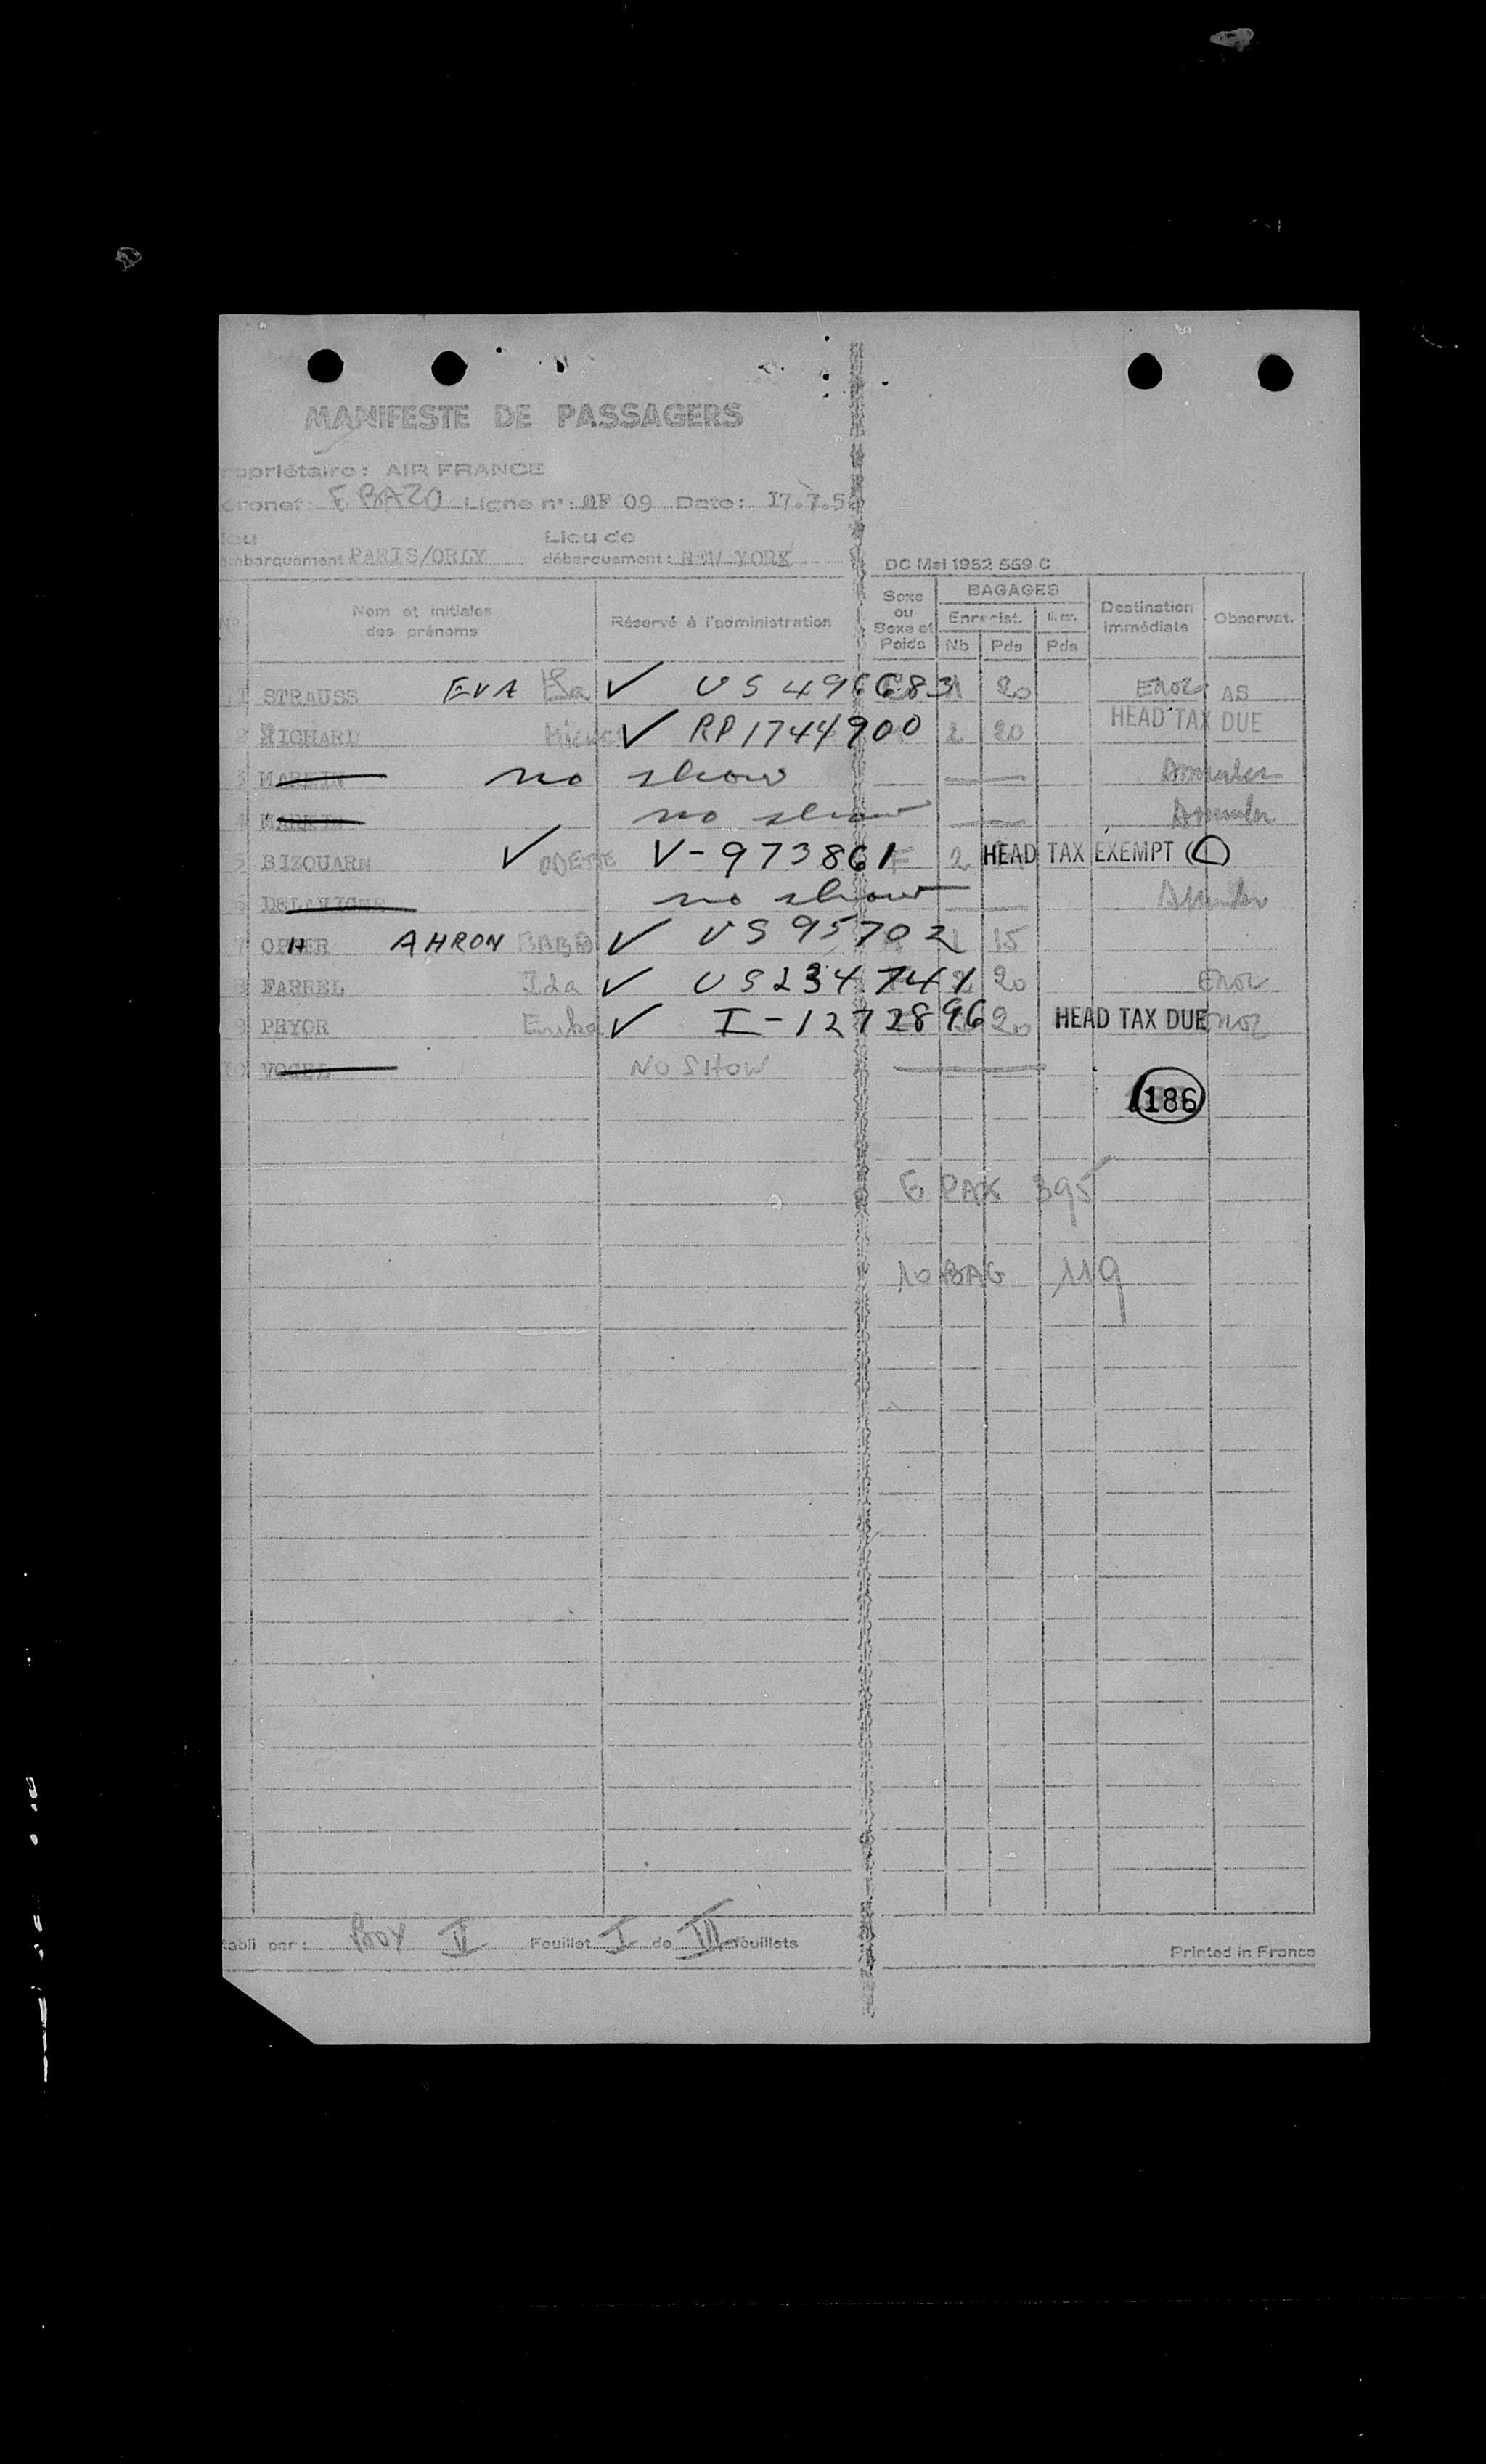 MANIFESTE DE PASSAGERS
ropriétaire : AIR FRANCE
éronef : F BAZO Ligne n° : AF 09 Date : I7.7.5
ieu Lieu de
embarquement PARIS/ORLY débarquement : NEW YORK
DC Mai 1952 559 C
N° Nom et initiales des prénoms Réservé à l'administration Sexe ou Sexe et Poids BAGAGES Enregist. Nb Pds Pds Destination immédiate Observat.
1 STRAUSS EVA ✓ US 496683 1 20 AS
2 RICHARD ✓ RP1744900 2 20 HEAD TAX DUE
3 MARKIN no show Annuler
4 MARKIN no show Annuler
5 SIZOUARN ✓ ODETTE V-973861 F 2 HEAD TAX EXEMPT
6 DELAVIGNE no show Annuler
7 OPHER AHRON ✓ US 95702 1 15
8 FARREL Ida ✓ US234741 2 20
9 PRYOR ✓ I-1272896 20 HEAD TAX DUE
10 VOGEL NO SHOW
186
6 PAX 395
10 BAG 119
tabli par : ROY II Feuillet I de III feuillets
Printed in France